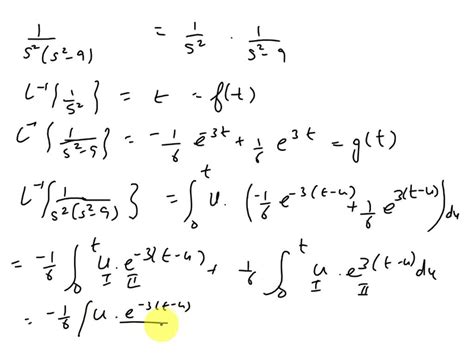 1/(s²(s²-9)) = 1/s² · 1/(s²-9)
L⁻¹{1/s²} = t = f(t)
L⁻¹{1/(s²-9)} = -1/6 e^(-3t) + 1/6 e^(3t) = g(t)
L⁻¹{1/(s²(s²-9))} = ∫₀ᵗ u · (-1/6 e^(-3(t-u)) + 1/6 e^(3(t-u))) du
= -1/6 ∫₀ᵗ u · e^(-3(t-u)) + 1/6 ∫₀ᵗ u · e^(3(t-u)) du
I II I II
= -1/6 [u · e^(-3(t-u))